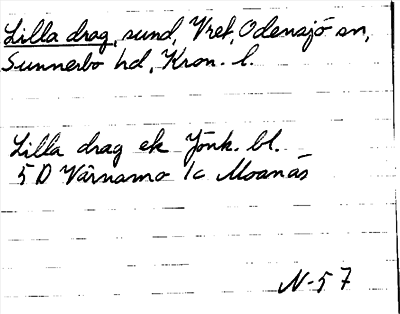 Lilla drag, sund, Vret, Odensjö sn,
Sunnerbo hd, Kron. l.
Lilla drag ek Jönk. bl.
5 D Värnamo 1c Moanäs
N-57